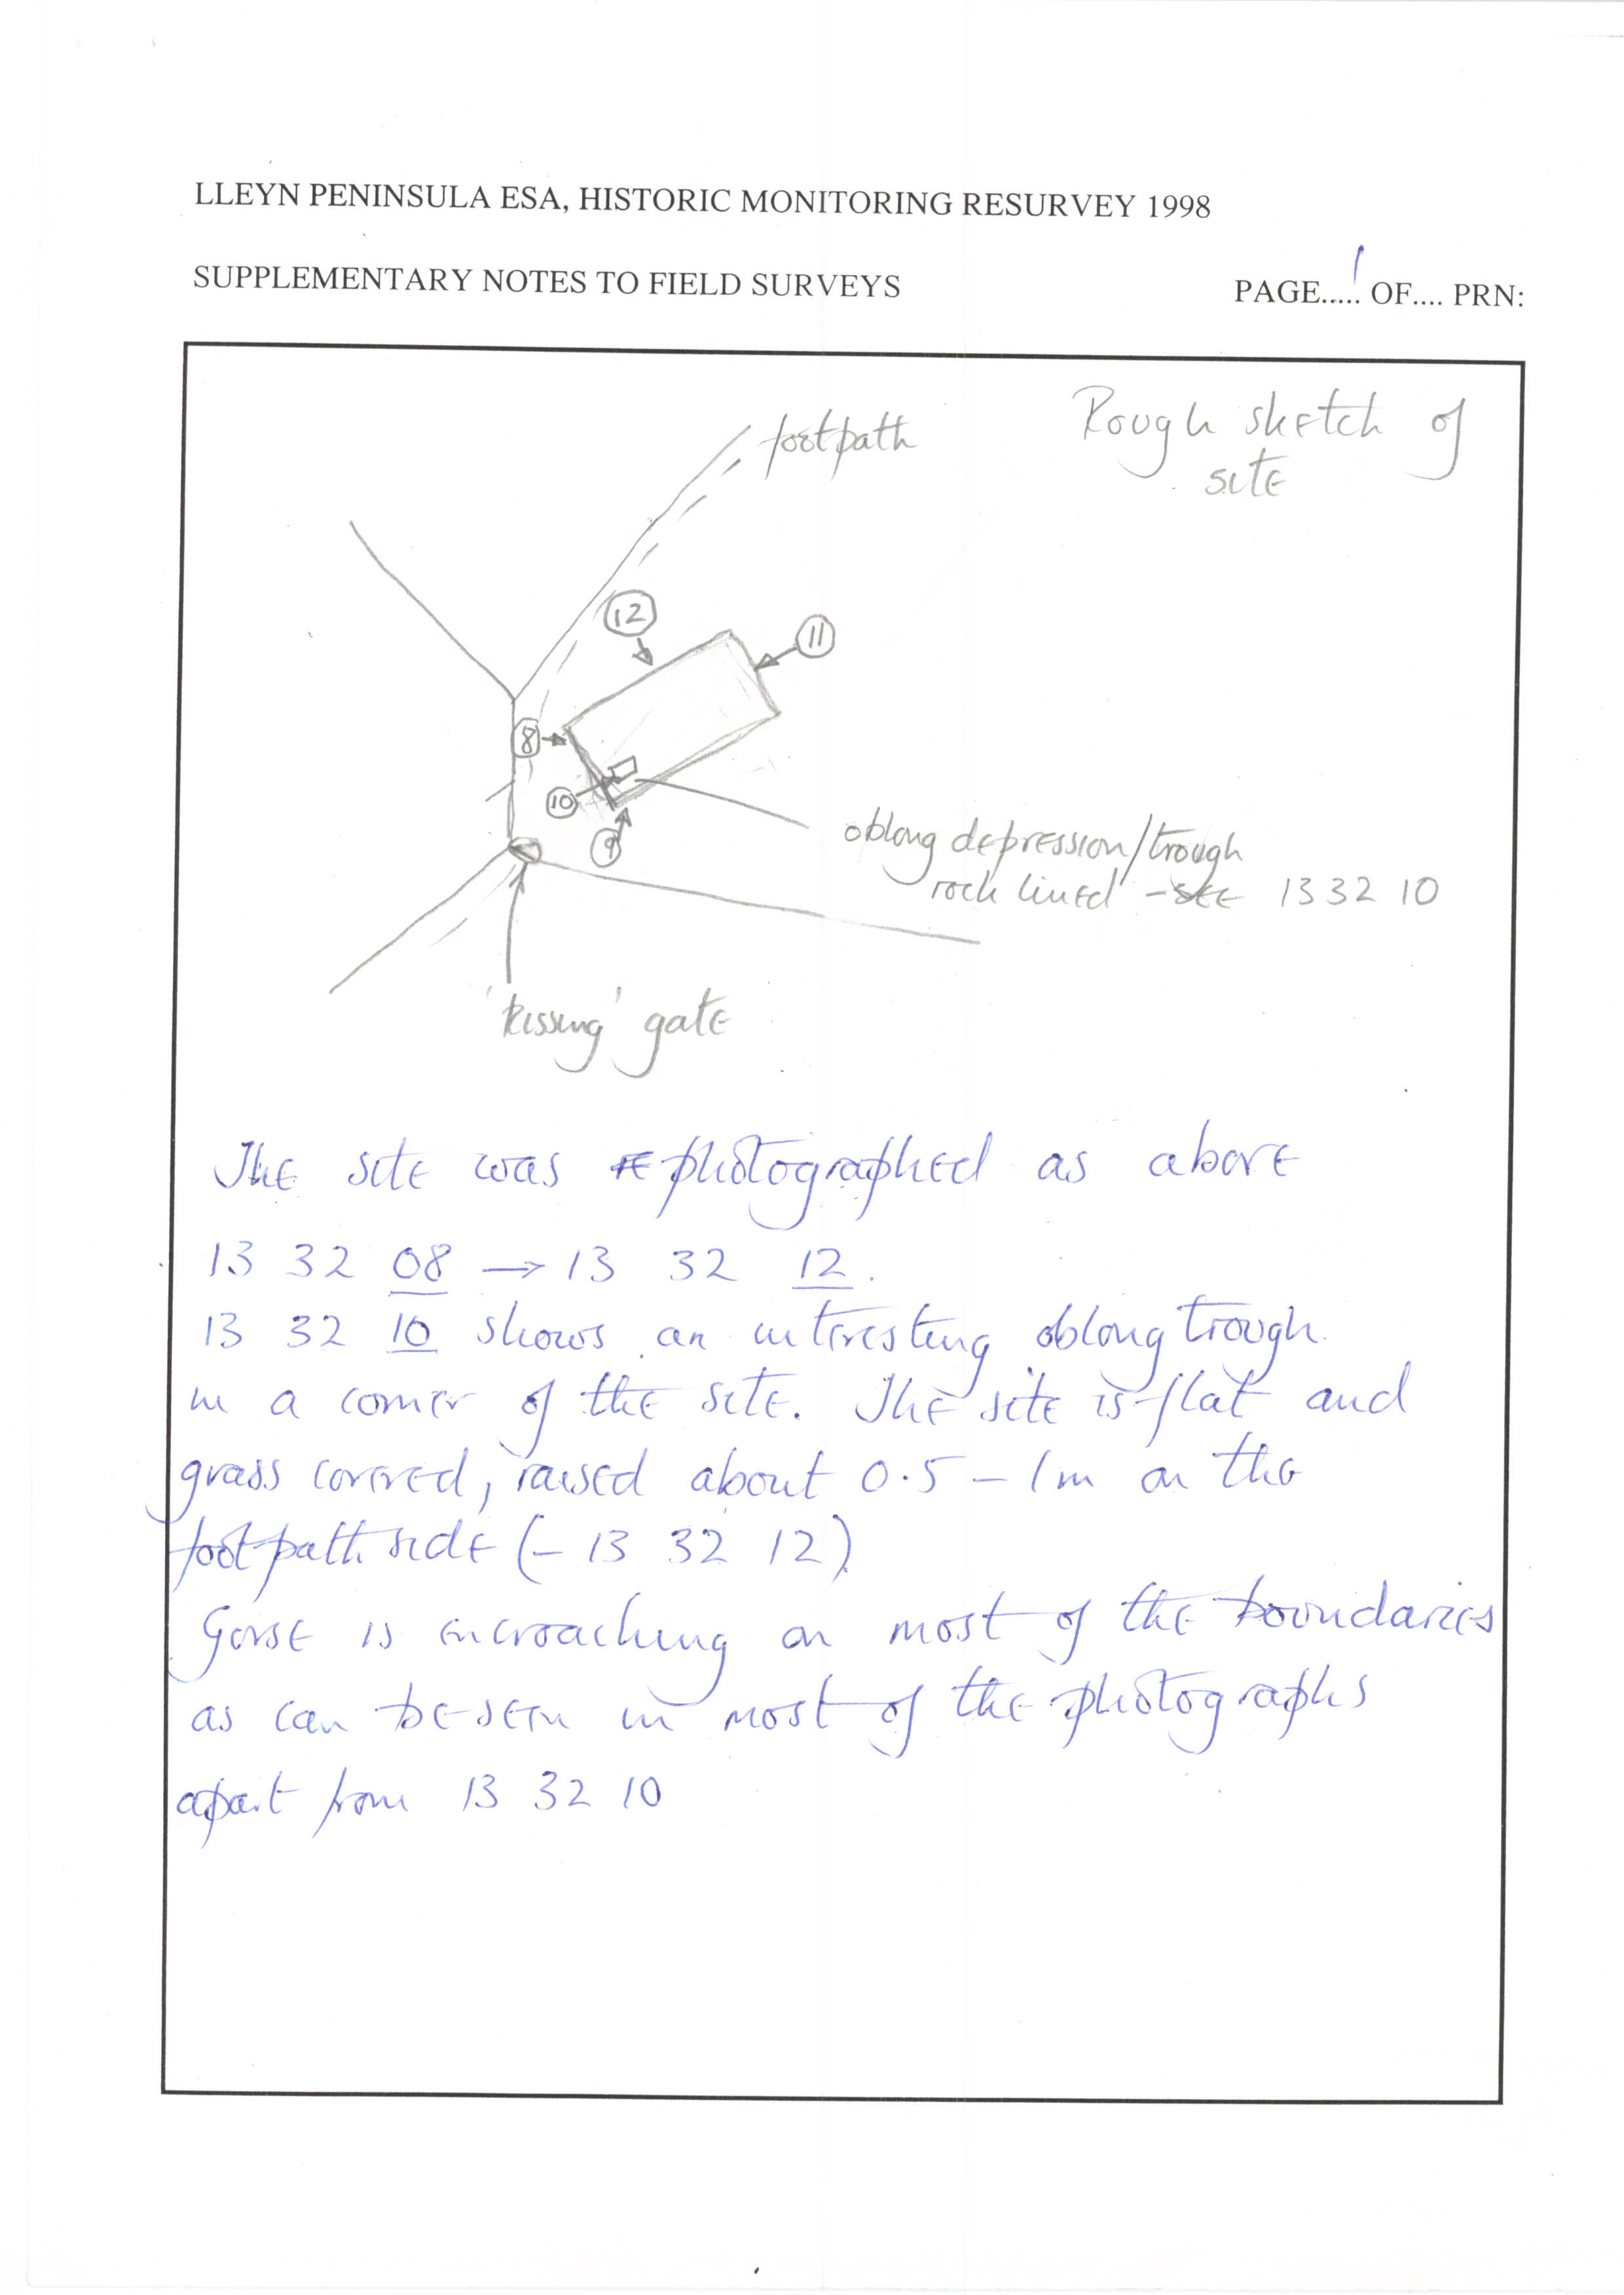 LLEYN PENINSULA ESA, HISTORIC MONITORING RESURVEY 1998
SUPPLEMENTARY NOTES TO FIELD SURVEYS
PAGE..1.. OF.... PRN:
Rough sketch of
site
footpath
12
11
8
10
9
oblong depression/trough
rock lined - see 13 32 10
'kissing' gate
The site was photographed as above
13 32 08 → 13 32 12.
13 32 10 shows an interesting oblong trough
in a corner of the site. The site is flat and
grass covered, raised about 0.5 - 1m on the
footpath side (- 13 32 12)
Gorse is encroaching on most of the boundaries
as can be seen in most of the photographs
apart from 13 32 10